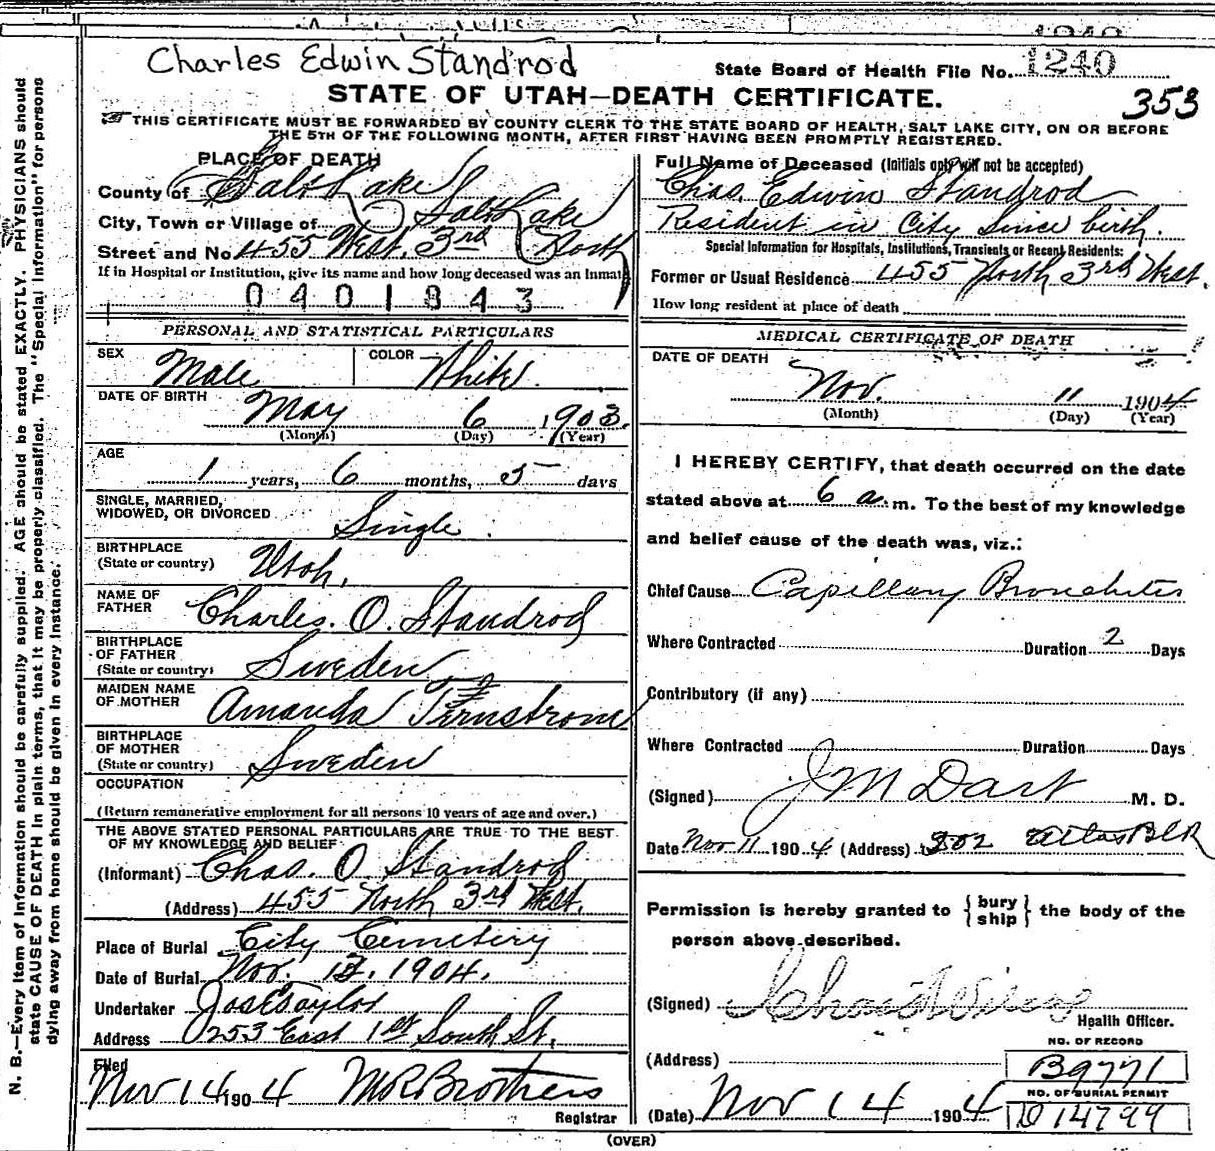 Charles Edwin Standrod
State Board of Health File No. 1240
STATE OF UTAH—DEATH CERTIFICATE.
353
THIS CERTIFICATE MUST BE FORWARDED BY COUNTY CLERK TO THE STATE BOARD OF HEALTH, SALT LAKE CITY, ON OR BEFORE
THE 5TH OF THE FOLLOWING MONTH, AFTER FIRST HAVING BEEN PROMPTLY REGISTERED.
PLACE OF DEATH
County of Salt Lake
City, Town or Village of Salt Lake
Street and No. 455 West 3rd North
If in Hospital or Institution, give its name and how long deceased was an Inmate
0401843
PERSONAL AND STATISTICAL PARTICULARS
SEX Male COLOR White.
DATE OF BIRTH
May 6 1903.
(Month) (Day) (Year)
AGE
1 years, 6 months, 5 days
SINGLE, MARRIED,
WIDOWED, OR DIVORCED Single.
BIRTHPLACE
(State or country) Utah.
NAME OF
FATHER Charles. O. Standrod
BIRTHPLACE
OF FATHER
(State or country) Sweden
MAIDEN NAME
OF MOTHER Amanda Ternstrom
BIRTHPLACE
OF MOTHER
(State or country) Sweden
OCCUPATION
(Return remunerative employment for all persons 10 years of age and over.)
THE ABOVE STATED PERSONAL PARTICULARS ARE TRUE TO THE BEST
OF MY KNOWLEDGE AND BELIEF
(Informant) Chas. O. Standrod
(Address) 455 North 3rd West.
Place of Burial City Cemetery
Date of Burial Nov. 13. 1904.
Undertaker Jos E Taylor
Address 253 East 1st South St.
Filed
Nov 14 1904 M R Brothers
Registrar
Full Name of Deceased (Initials only will not be accepted)
Chas. Edwin Standrod
Resident in City since birth.
Special Information for Hospitals, Institutions, Transients or Recent Residents:
Former or Usual Residence 455 North 3rd West.
How long resident at place of death
MEDICAL CERTIFICATE OF DEATH
DATE OF DEATH
Nov. 11 1904
(Month) (Day) (Year)
I HEREBY CERTIFY, that death occurred on the date
stated above at 6 a. m. To the best of my knowledge
and belief cause of the death was, viz.:
Chief Cause Capillary Bronchitis
Where Contracted Duration 2 Days
Contributory (if any)
Where Contracted Duration Days
(Signed) J M Dart M. D.
Date Nov 11 1904 (Address) 302 Atlas Blk
Permission is hereby granted to {bury
ship} the body of the
person above described.
(Signed)
Health Officer.
(Address)
NO. OF RECORD
B9771
NO. OF BURIAL PERMIT
D 14799
(Date) Nov 14 1904
(OVER)
N. B.—Every item of information should be carefully supplied. AGE should be stated EXACTLY. PHYSICIANS should
state CAUSE OF DEATH in plain terms, that it may be properly classified. The "Special Information" for persons
dying away from home should be given in every instance.